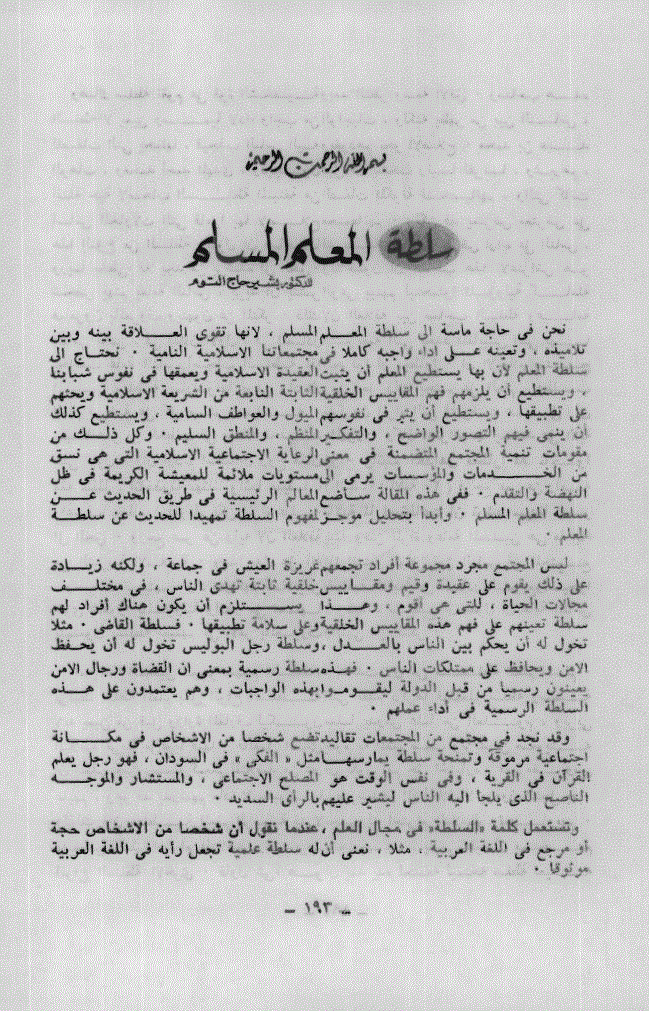 بسم الله الرحمن الرحيم
سلطة المعلم المسلم
للدكتور بشير حاج التوم
نحن فى حاجة ماسة الى سلطة المعلم المسلم ، لانها تقوى العلاقة بينه وبين
تلاميذه ، وتعينه على أداء واجبه كاملا فى مجتمعاتنا الاسلامية النامية ٠ نحتاج الى
سلطة المعلم لأن بها يستطيع المعلم أن يثبت العقيدة الاسلامية ويعمقها فى نفوس شبابنا
، ويستطيع أن يلزمهم فهم المقاييس الخلقية الثابتة النابعة من الشريعة الاسلامية ويحثهم
على تطبيقها ، ويستطيع أن يثير فى نفوسهم الميول والعواطف السامية ، ويستطيع كذلك
أن ينمى فيهم التصور الواضح ، والتفكير المنظم ، والمنطق السليم ٠ وكل ذلك من
مقومات تنمية المجتمع المتضمنة فى معنى الرعاية الاجتماعية الاسلامية التى هى نسق
من الخدمات والمؤسسات يرمى الى مستويات ملائمة للمعيشة الكريمة فى ظل
النهضة والتقدم ٠ ففى هذه المقالة سأضع المعالم الرئيسية فى طريق الحديث عن
سلطة المعلم المسلم ٠ وأبدأ بتحليل موجز لمفهوم السلطة تمهيدا للحديث عن سلطة
المعلم ٠
ليس المجتمع مجرد مجموعة أفراد تجمعهم غريزة العيش فى جماعة ، ولكنه زيادة
على ذلك يقوم على عقيدة وقيم ومقاييس خلقية ثابتة تهدى الناس ، فى مختلف
مجالات الحياة ، للتى هى أقوم ، وهذا يستلزم أن يكون هناك أفراد لهم
سلطة تعينهم على فهم هذه المقاييس الخلقية وعلى سلامة تطبيقها ٠ فسلطة القاضى ٠ مثلا
تخول له أن يحكم بين الناس بالعدل ، وسلطة رجل البوليس تخول له أن يحفظ
الامن ويحافظ على ممتلكات الناس ٠ فهذه سلطة رسمية بمعنى ان القضاة ورجال الامن
يعينون رسميا من قبل الدولة ليقوموا بهذه الواجبات ، وهم يعتمدون على هذه
السلطة الرسمية فى أداء عملهم ٠
وقد نجد فى مجتمع من المجتمعات تقاليد تضع شخصا من الاشخاص فى مكانة
اجتماعية مرموقة وتمنحة سلطة يمارسها مثل « الفكى » فى السودان ، فهو رجل يعلم
القرآن فى القرية ، وفى نفس الوقت هو المصلح الاجتماعى ، والمستشار والموجه
الناصح الذى يلجأ اليه الناس ليشير عليهم بالرأى السديد ٠
وتستعمل كلمة «السلطة» فى مجال العلم ، عندما نقول أن شخصا من الاشخاص حجة
أو مرجع فى اللغة العربية ، مثلا ، نعنى أن له سلطة علمية تجعل رأيه فى اللغة العربية
موثوقا ٠
– ١٩٣ –